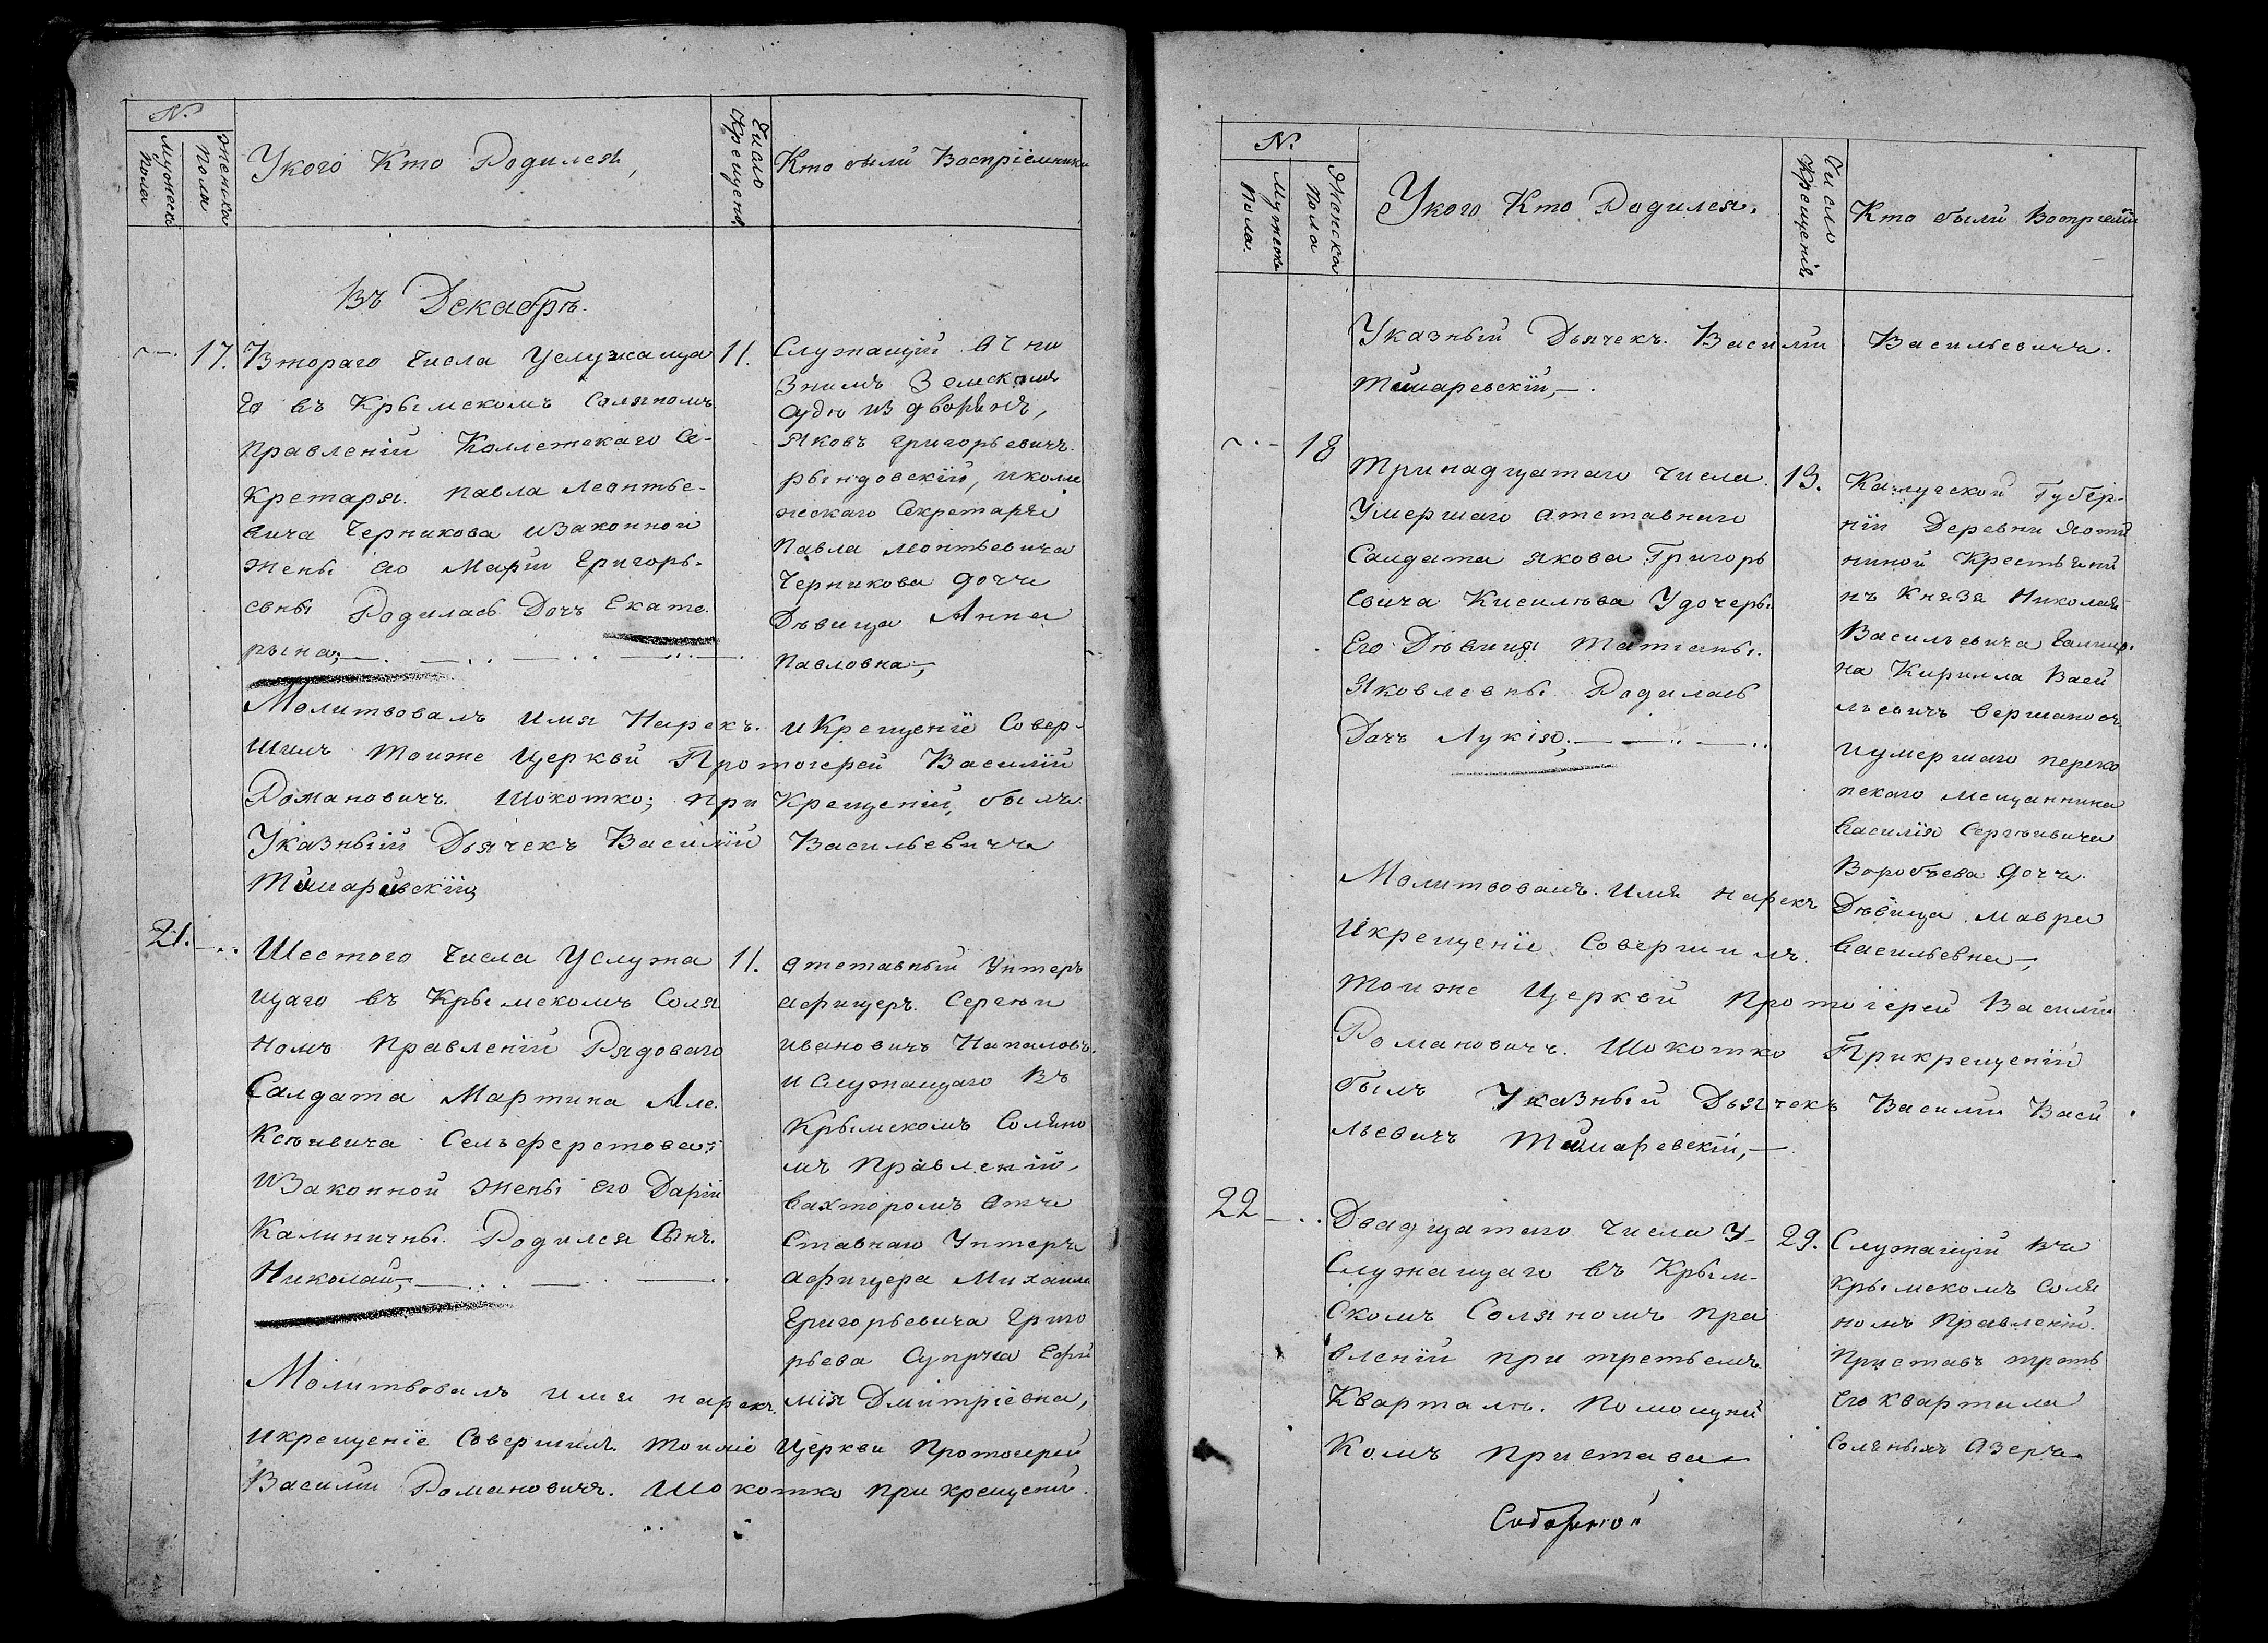 №
Мужеска Пола
Женска Пола
Укого Кто Родился,
Число Крещенъ
Кто были Воспріемники
Въ Декабрѣ.
17. Втораго Числа Услужаща
го въ Крымскомъ Соляномъ
Правленіи Коллежскаго Се-
кретаря. Павла Леонтье-
вича Черникова изаконной
жены его Маріи Григорь-
евны Родилась Дочь Екате-
рына;
11. Служащій
Земскомъ
Судѣ из дворянъ,
Яковъ Григорьевичъ.
рындовскій, иколи
жескаго Секретаря
Павла Леонтьевича
Черникова дочь
Дѣвица Анна
Павловна,
Молитвовалъ имя Нарекъ. и Крещеніе Совер-
шилъ тоиже Церкви Протоіерей Василій
Романовичъ. Шокотко; при Крещеніи, былъ
Указный Дьячекъ Василій Васильевичъ
Тимаревскій,
21. Шестого Числа Услужа
щаго въ Крымскомъ Соля
номъ Правленіи Рядоваго
Салдата Мартина Але-
Ксѣивича
изаконной жены его Даріи
Калиничны. Родился Сынъ.
Николай,
11. отставный Унтеръ
афицеръ. Сергѣи
Ивановичъ
и служащаго Въ
Крымскомъ Соляно
мъ Правленіи,
вахторомъ Отъ
Ставнаго Унтеръ
афицера Михаила
Григорьевича Григо
рьева Супруга Ефи
мія Дмитріевна,
Молитвовалъ имя нарекъ.
икрещеніе Совершилъ тоиже Церкви Протоиерей
Василій Романовичъ. Шокотко при крещеніи.
№
Мужеска Пола.
Женска Пола
Укого Кто Родился.
Число Крещенія
Кто были Воспріемни
Указный Дьячекъ. Василій Васильевичъ.
Тимаревскій,
18 Тринадцатаго Числа.
Умершаго атставнаго
Салдата Якова Григорь
евича Кисилѣва Удочеры
Его Дѣвицы Татіаны.
Яковлевны Родилась
Дочь Лукія,
13. Калужской Губер-
ніи Деревни
ниной Крестьяни
нъ Князя Николая
Васильевича Галици
на Кирилла Васи
льевичъ
иумершаго переко
пскаго мещанина
Василія Сергѣивича
Воробъева дочь.
Дѣвица. мавра
Васильевна,
Молитвовалъ. имя нарекъ
Икрещеніе Совершилъ.
тоиже Церкви Протоіерей Василій
Романовичъ. Шокотко Прикрещеніи
былъ Указный Дьячекъ Василій Васи
льевичъ Тимаревскій,
22 Двадцатаго Числа У-
Служащаго въ Крым-
скомъ Соляномъ пра
вленіи при третьемъ
Кварталѣ. Помощни
комъ Пристава
29. Служащій Въ
Крымскомъ Соля
номъ Правленіи.
Приставъ треть
его квартала
Соляныхъ Азеръ
Соборной